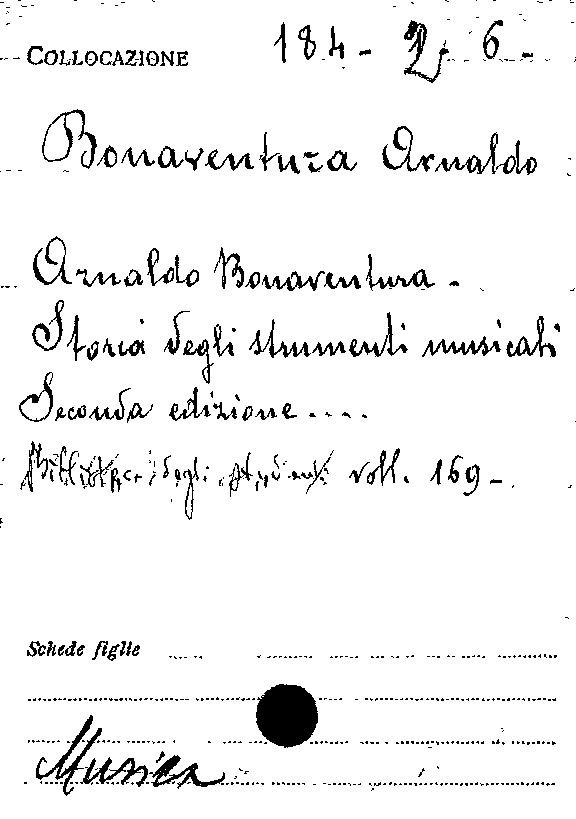 COLLOCAZIONE 184 - 2 6 -
Bonaventura Arnaldo
Arnaldo Bonaventura -
Storia degli strumenti musicali
Seconda edizione ....
degli studenti voll. 169 -
Schede figlie
Musica